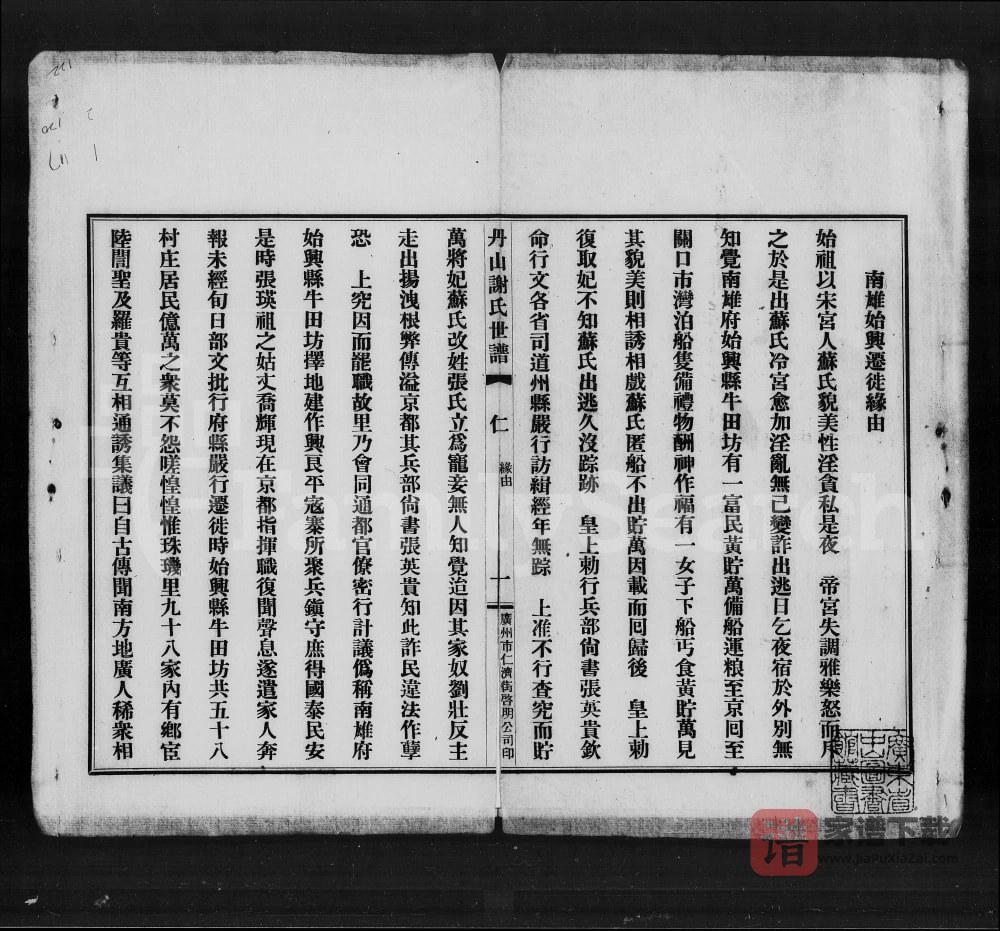 南雄始興遷徙緣由
始祖以宋宮人蘇氏貌美性淫貪私是夜　帝宮失調雅樂怒而斥
之於是出蘇氏冷宮愈加淫亂無己變詐出逃日乞夜宿於外別無
知覺南雄府始興縣牛田坊有一富民黃貯萬備船運粮至京囘至
關口市灣泊船隻備禮物酬神作福有一女子下船丐食黃貯萬見
其貌美則相誘相戲蘇氏匿船不出貯萬因載而囘歸後　皇上勅
復取妃不知蘇氏出逃久沒踪跡　皇上勅行兵部尙書張英貴欽
命行文各省司道州縣嚴行訪緝經年無踪　上准不行查究而貯
丹山謝氏世譜
仁
緣由
一
廣州市仁濟街啓明公司印
萬將妃蘇氏改姓張氏立爲寵妾無人知覺迨因其家奴劉壯反主
走出揚洩根弊傳溢京都其兵部尙書張英貴知此詐民違法作孽
恐　上究因而罷職故里乃會同通都官僚密行計議僞稱南雄府
始興縣牛田坊擇地建作興良平寇寨所聚兵鎭守庶得國泰民安
是時張瑛祖之姑丈喬輝現在京都指揮職復聞聲息遂遣家人奔
報未經旬日部文批行府縣嚴行遷徙時始興縣牛田坊共五十八
村庄居民億萬之衆莫不怨嗟惶惶惟珠璣里九十八家內有鄕宦
陸誾聖及羅貴等互相通誘集議曰自古傳聞南方地廣人稀衆相
廣東省
中山圖書
館藏書
谱
家谱下载
www.JiaPuXiaZai.com
FamilySearch